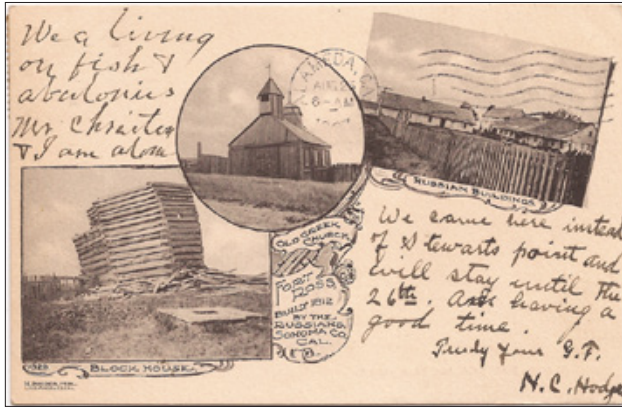 We a living
on fish &
abalonies
Mr
& I am alone
ALAMEDA, CAL
AUG 2
6-AM
RUSSIAN BUILDINGS
OLD GREEK
CHURCH
FORT
ROSS
BUILT 1812
BY THE
RUSSIANS
SONOMA CO.
CAL.
We came here instead
of Stewarts point and
will stay until the
26th. Am having a
good time.
Truly Your G.F.
N.C. Hodge
BLOCK HOUSE.